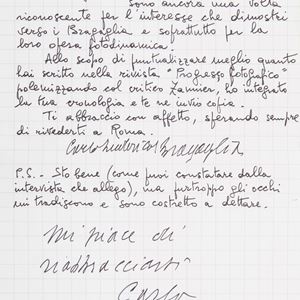 sono ancora una volta
riconoscente per l'interesse che dimostri
verso i Bragaglia e soprattutto per la
loro opera fotodinamica.
Allo scopo di puntualizzare meglio quanto
hai scritto nella rivista "Progresso fotografico"
polemizzando col critico Zannier, ho integrato
la tua cronologia e te ne invio copia.
Ti abbraccio con affetto, sperando sempre
di rivederti a Roma.
Carlo Ludovico Bragaglia
P.S. - Sto bene (come puoi constatare dalla
intervista che allego), ma purtroppo gli occhi
mi tradiscono e sono costretto a dettare.
mi piace di
riabbracciarti
Carlo